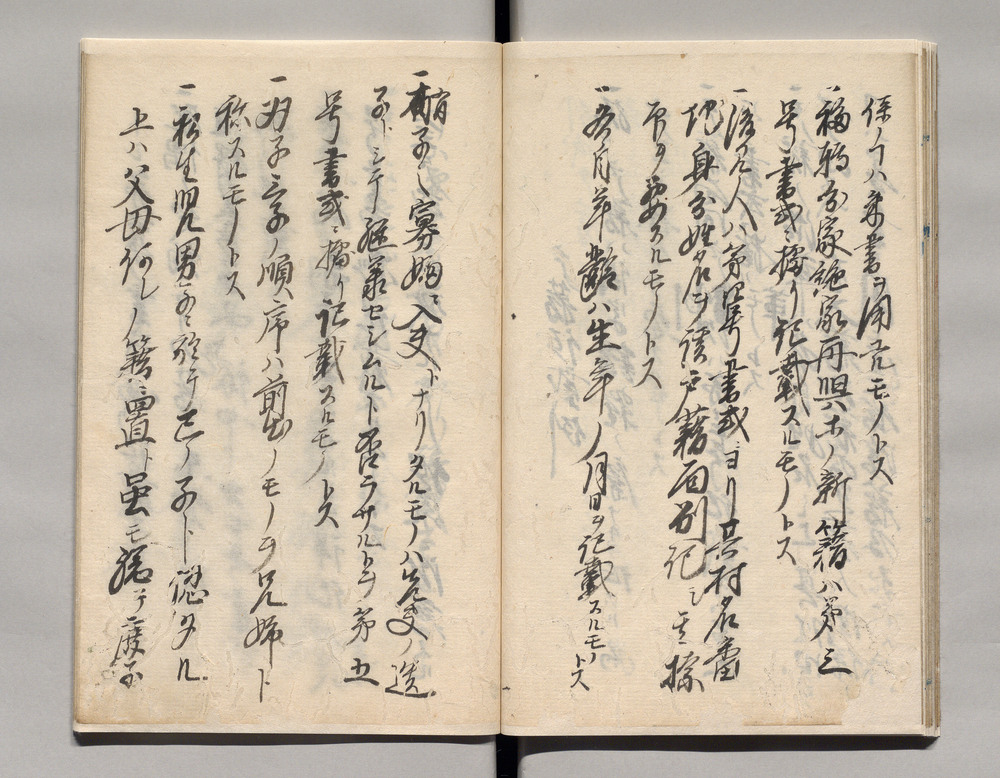 係ノコハ朱書ヲ用ユルモノトス
一移転分家絶家再興ホノ新籍ハ第三
号書式ニ據リ記載スルモノトス
一後見人ハ第四号書式ヨリ其村名番
地身分姓名ヲ該戸籍面別記シ其據
印ヲ要スルモノトス
一各自年齢ハ生年ノ月日ヲ記載スルモノトス
一嗣子ノ寡婦ニ入夫トナリタルモノハ先夫ノ遺
子トシテ継承セシムルト否ラサルトヲ第五
号書式ニ據リ記載スルモノトス
一男子女子ノ順序ハ前出ノモノヲ兄姉ト
称スルモノトス
一私生児男子ニ於テ己ノ子ト認タル
上ハ父母何レノ籍ニ置ト虽モ